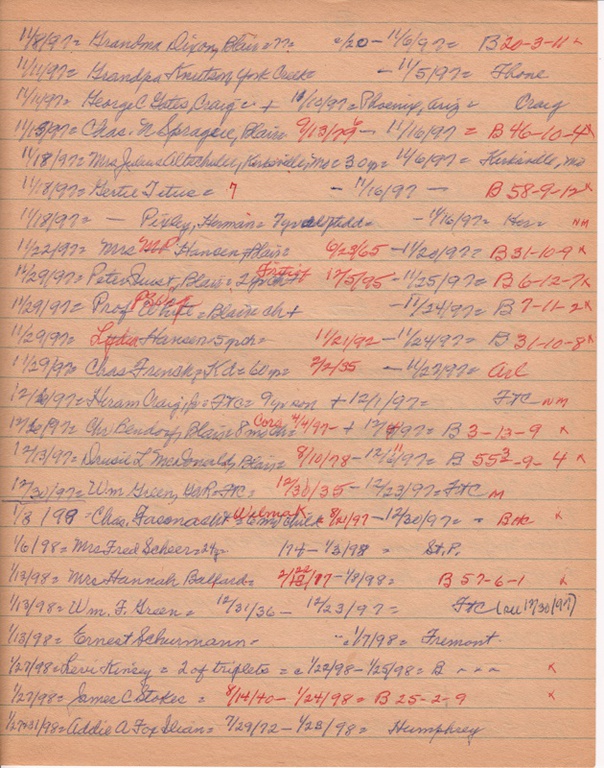 11/8/97 = Grandma Dixon, Blair = ?? c/20 - 11/6/97 = B 20-3-11 x
11/11/97 = Grandpa Knutson, York Creek = - 11/5/97 = Fhone
11/11/97 = George C Gates, Craig = + 10/10/97 = Phoenix, Ariz = Craig
11/15/97 = Chas. N Sprague, Blair = 9/13/79 - 11/16/97 = B 46-10-4 x
11/18/97 = Mrs Julius Kirksville, Mo = 30 yr = 11/6/97 = Kirksville, Mo
11/18/97 = Gertie Titus = 7 - 11/16/97 - B 58-9-12 x
11/18/97 = - Pixley, Herman = 7 yr - 11/16/97 = NM
11/22/97 = Mrs MP Hansen, Blair = 6/23/65 - 11/20/97 = B 31-10-9 x
11/29/97 = Peter Quist, Blair = 2 yr ch + 12/5/95 - 11/25/97 = B 6-12-7 x
11/29/97 = Prof White = Blair ch + - 11/24/97 = B 7-11-2 x
11/29/97 = Lydia Hansen = 5 yr ch = 11/21/92 - 11/24/97 = B 31-10-8 x
11/29/97 = Chas Frensk, Kd = 60 yr = 2/2/35 - 11/27/97 = Arl
12/6/97 = Hiram Craig, Jr = FtC = 9 yr son + 12/1/97 = FtC NM
12/6/97 = Chr Bendorf, Blair 8 mo ch = Cora 4/4/97 - + B 3-13-9 x
12/13/97 = Drusie L McDonald, Blair = 8/10/78 - B 55 3/2 - 9-4 x
12/30/97 = Wm Green, GAR = FtC = 12/30/35 - 12/23/97 = FtC M
1/3/98 = Chas. = Wilma K 8/21/97 - 12/30/97 = - x
1/6/98 = Mrs Fred Schoer = 24 yr 174 - 1/3/98 = St. P.
1/13/98 = Mrs Hannah Balfard = - 1/8/98 = B 57-6-1 x
1/13/98 = Wm. F. Green = 12/31/36 - 12/23/97 = FtC (all 12/30/97)
1/13/98 = Ernest Schurmann - "c 1/7/98 = Fremont
1/27/98 = Levi Kinsey = 2 of triplets = c 1/22/98 - 1/25/98 = B - - - x
1/27/98 = James C Stokes = 8/14/40 - 1/24/98 = B 25-2-9 x
1/27+31/98 = Addie A Fox Ilian = 7/29/72 - 1/23/98 = Humphrey